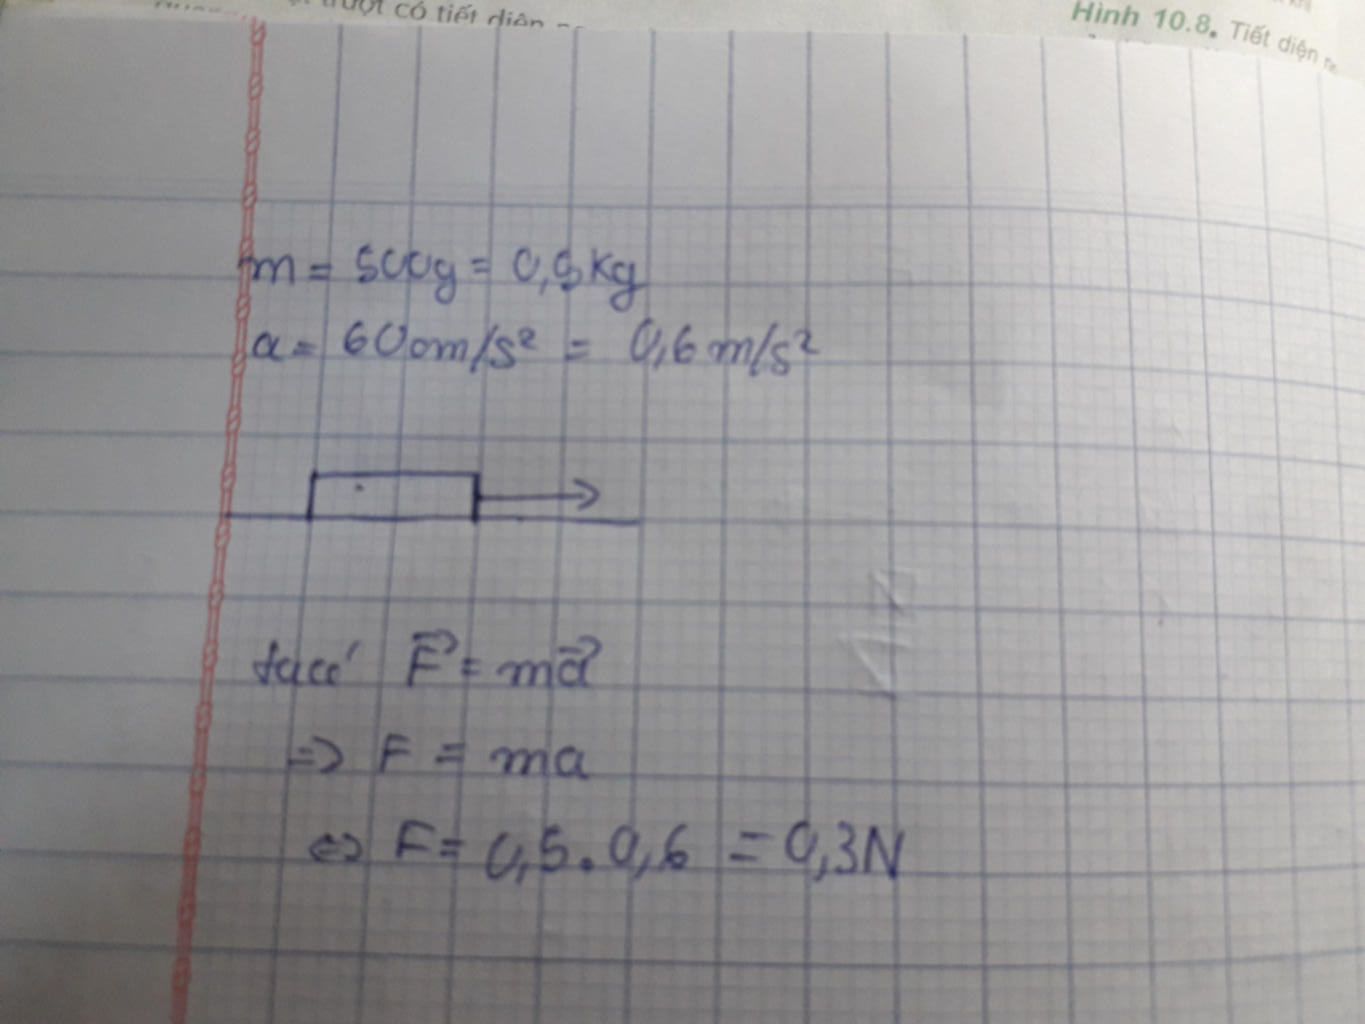 trượt có tiết diện
Hình 10.8. Tiết diện
m = 500g = 0,5kg
a = 60cm/s² = 0,6m/s²
ta có F⃗ = ma⃗
=> F = ma
<=> F = 0,5.0,6 = 0,3N